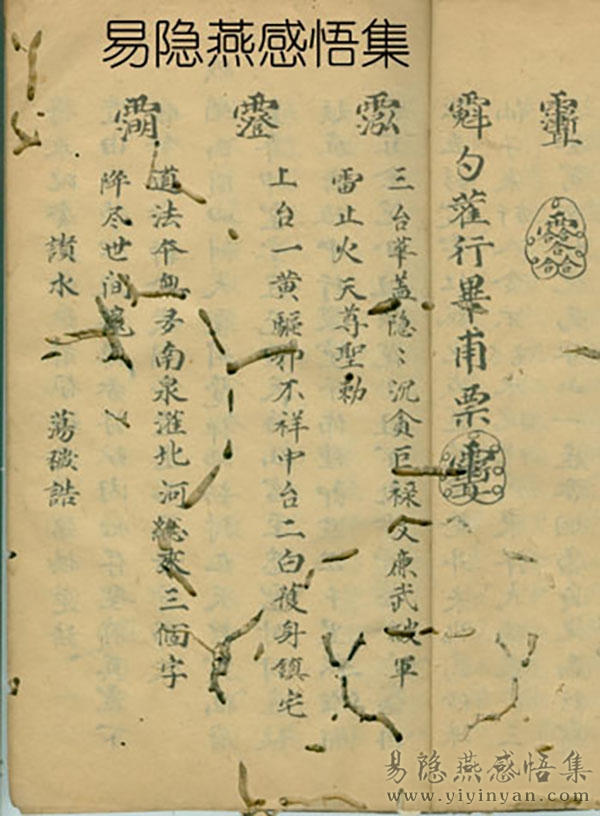 易隐燕感悟集
勺雚行畢甫票
三台華盖隐〻沉貪巨禄文廉武破軍
雷止火天尊聖勅
上台一黄驅邪不祥中台二白護身鎮宅
道法本無多南泉灌北河總來三個字
降尽世間魔
讃水 荡穢誥
易隐燕感悟集
www.yiyinyan.com